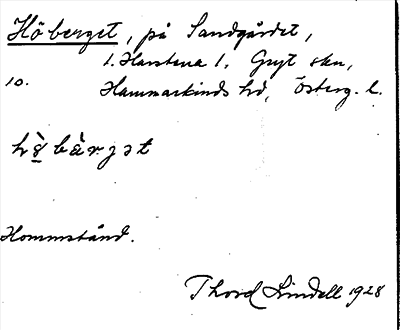 Höberget, på Sandgärdet,
1. Harstena 1, Gryt skn,
10. Hammarkinds hd, Österg. l.
hö̀bæ̀rget
Hommstånd.
Thord Lindell 1928